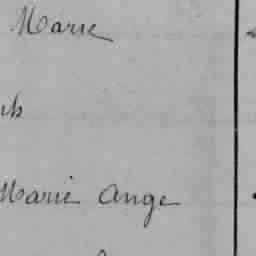 Marie
Marie Ange